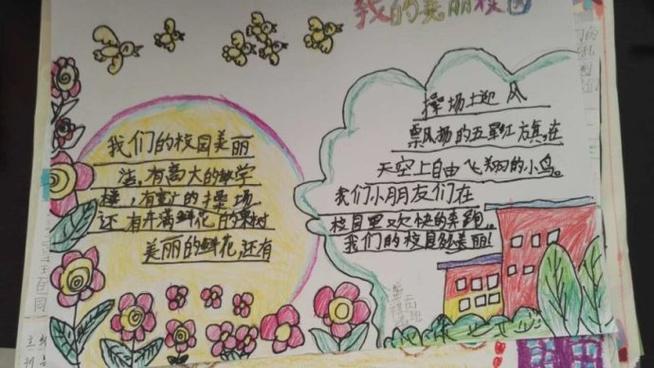 我的美丽校园
我们的校园美丽
洁,有高大的教学
楼,有宽广的操场
还有开满鲜花的果树
美丽的鲜花,还有
操场上迎风
飘扬的五星红旗,在
天空上自由飞翔的小鸟。
我们小朋友们在
校园里欢快的奔跑。
我们的校园多美丽!